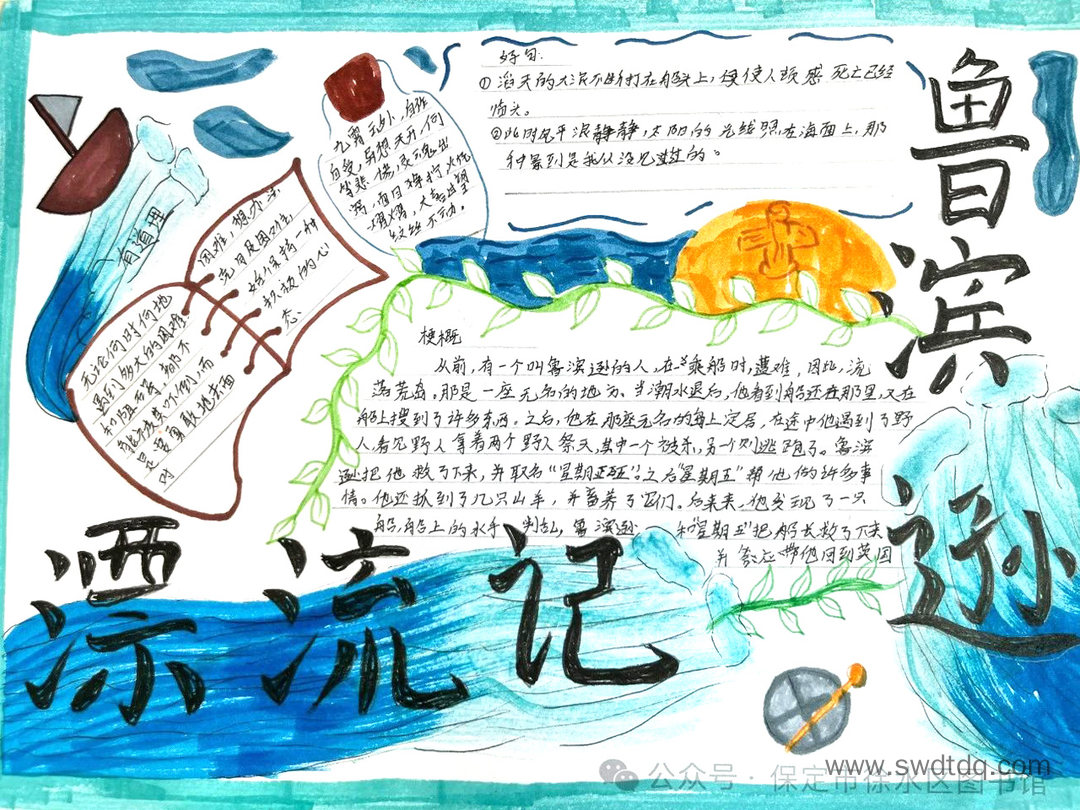 鲁滨逊
漂流记
好句:
①滔天的大浪不断打在船头上,使人
死亡已经
临头。
②此时风平浪静静,太阳的光线照在海面上,那
种景
是我从没见
过的。
九霄云外,自作
自受,异想天开,何
有道理
困难,想办法
克服困难,
好保持一种
积极的心
态
无论何时何地
遇到多大的困难
和阻
,都不
能
吓倒,而
是要勇敢地去面
对
梗概
从前,有一个叫鲁滨逊的人,在乘船时,遭难,因此,流
落荒岛,那是一座无名的地方。当潮水退后,他看到船还在那里,又在
船上搜到了许多东西。之后,他在那座无名的岛上定居,在途中他遇到了野
人,看见野人拿着两个野人祭天,其中一个被杀,另一个则逃跑了。鲁滨
逊把他救了下来,并取名“星期五”之后“星期五”帮他做许多事
情。他还抓到了几只山羊,并畜养了它们。后来,他发现了一只
船,船上的水手
叛乱,鲁滨逊
和“星期五”把船长救了下来
并答应带他回到英国
公众号·保定市徐水区图书馆
www.swdtdq.com